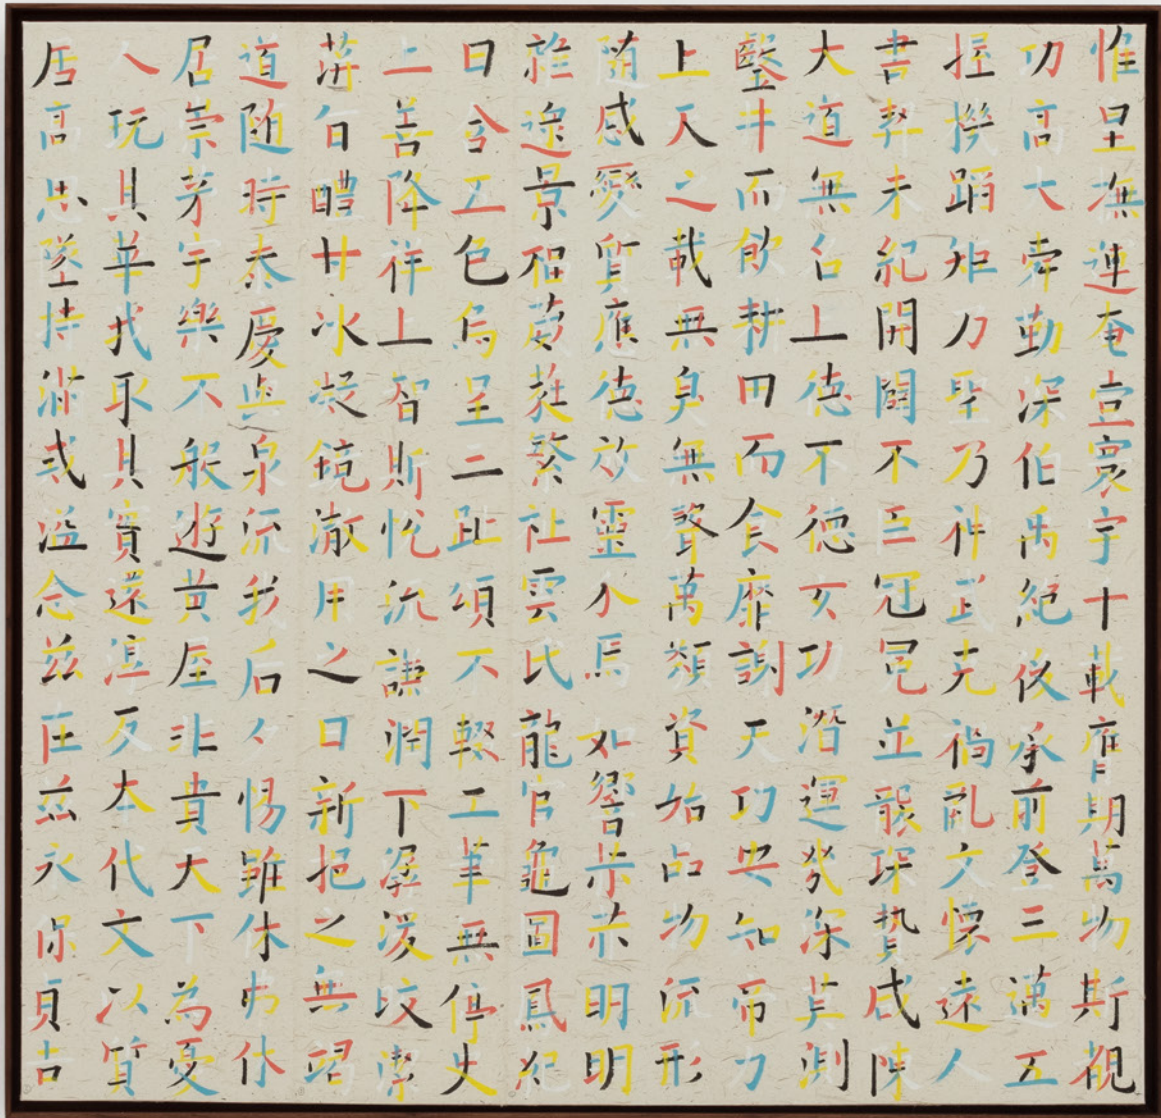 惟皇撫運奄壹寰宇千載膺期萬物斯覩
功高大舜勤深伯禹絕後承前登三邁五
握機蹈矩乃聖乃神武克禍亂文懷遠人
書契未紀開闢不臣冠冕並襲琛贄咸陳
大道無名上德不德玄功潛運幾深莫測
鑿井而飲耕田而食靡謝天功安知帝力
上天之載無臭無聲萬類資始品物流形
隨感變質應德效靈介焉如響赫赫明明
雜遝景福葳蕤繁祉雲氏龍官龜圖鳳紀
日含五色烏呈三趾頌不輟工筆無停史
上善降祥上智斯悅流謙潤下潺湲皎潔
蓱旨醴甘冰凝鏡澈用之日新挹之無竭
道隨時泰慶與泉流我后夕惕雖休弗休
居崇茅宇樂不般遊黃屋非貴天下為憂
人玩其華我取其實還淳反本代文以質
居高思墜持滿戒溢念茲在茲永保貞吉